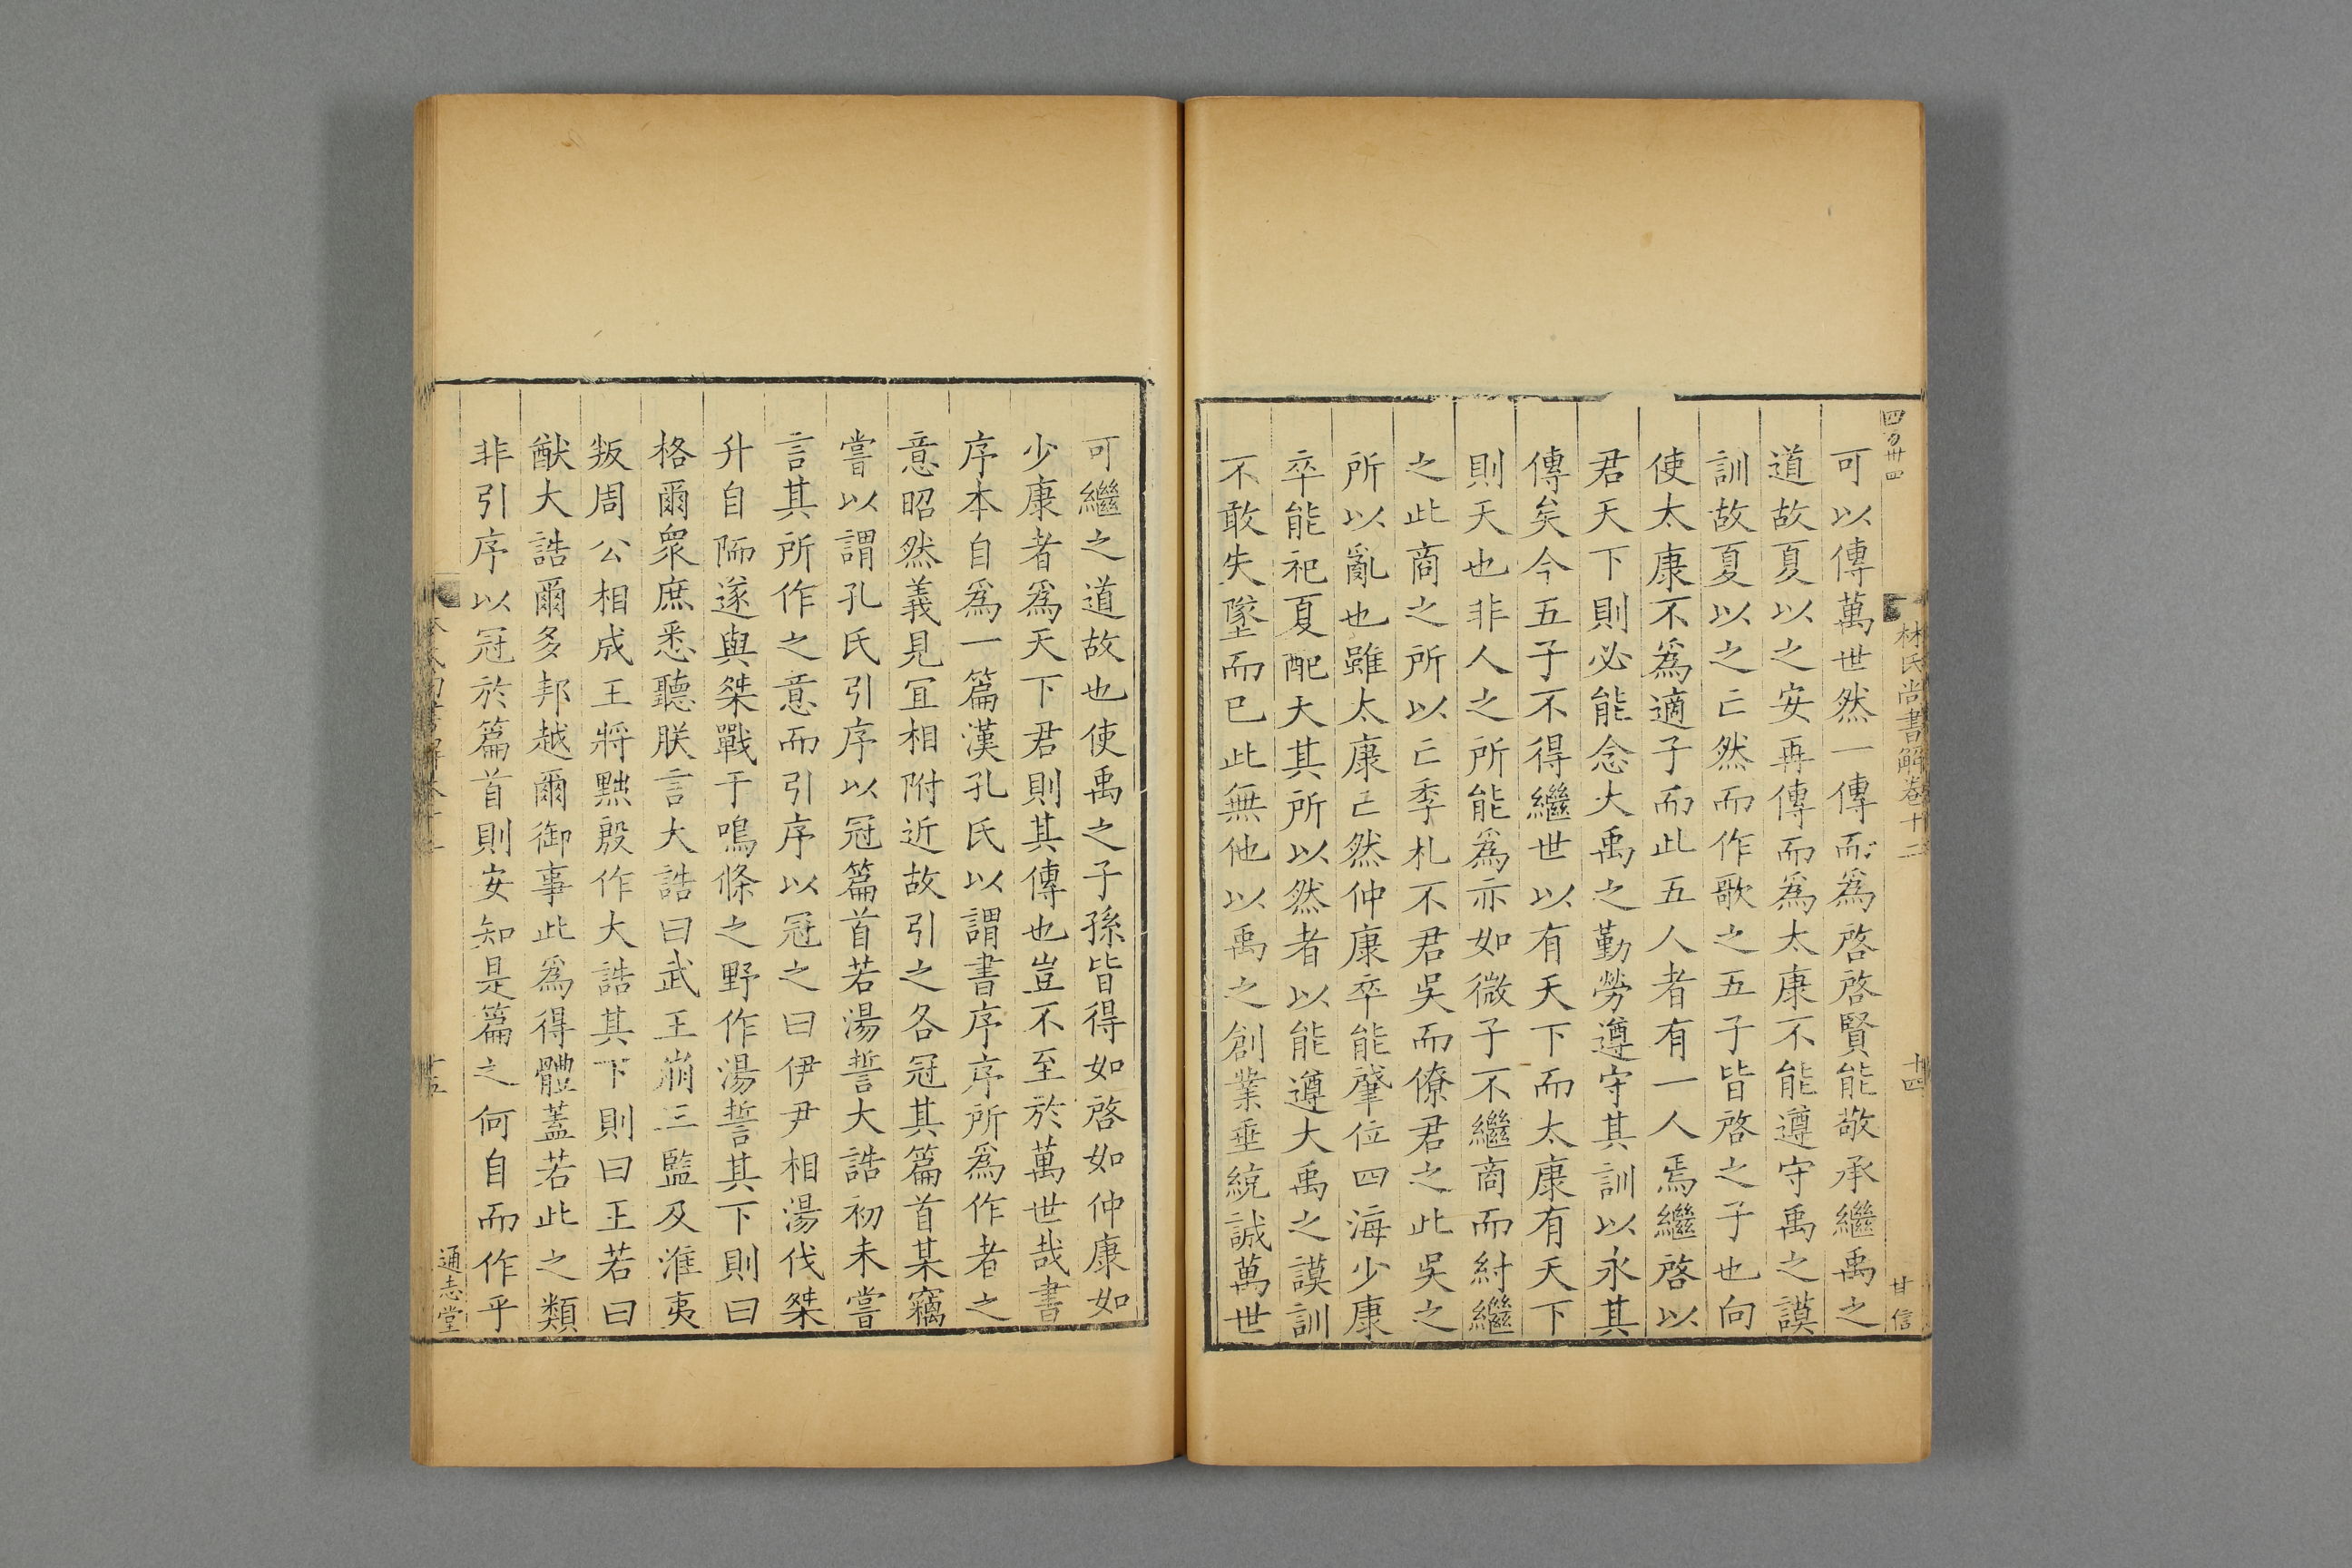 四百卅四
林氏尚書解卷十二
十四
甘信
可以傳萬世然一傳而爲啓啓賢能敬承繼禹之
道故夏以之安再傳而爲太康不能遵守禹之謨
訓故夏以之亡然而作歌之五子皆啓之子也向
使太康不爲適子而此五人者有一人焉繼啓以
君天下則必能念大禹之勤勞遵守其訓以永其
傳矣今五子不得繼世以有天下而太康有天下
則天也非人之所能爲亦如微子不繼商而紂繼
之此商之所以亡季札不君吳而僚君之此吳之
所以亂也雖太康亡然仲康卒能肇位四海少康
卒能祀夏配天其所以然者以能遵大禹之謨訓
不敢失墜而已此無他以禹之創業垂統誠萬世
可繼之道故也使禹之子孫皆得如啓如仲康如
少康者爲天下君則其傳也豈不至於萬世哉書
序本自爲一篇漢孔氏以謂書序序所爲作者之
意昭然義見宜相附近故引之各冠其篇首某竊
嘗以謂孔氏引序以冠篇首若湯誓大誥初未嘗
言其所作之意而引序以冠之曰伊尹相湯伐桀
升自陑遂與桀戰于鳴條之野作湯誓其下則曰
格爾衆庶悉聽朕言大誥曰武王崩三監及淮夷
叛周公相成王將黜殷作大誥其下則曰王若曰
猷大誥爾多邦越爾御事此爲得體蓋若此之類
非引序以冠於篇首則安知是篇之何自而作乎
十五
通志堂